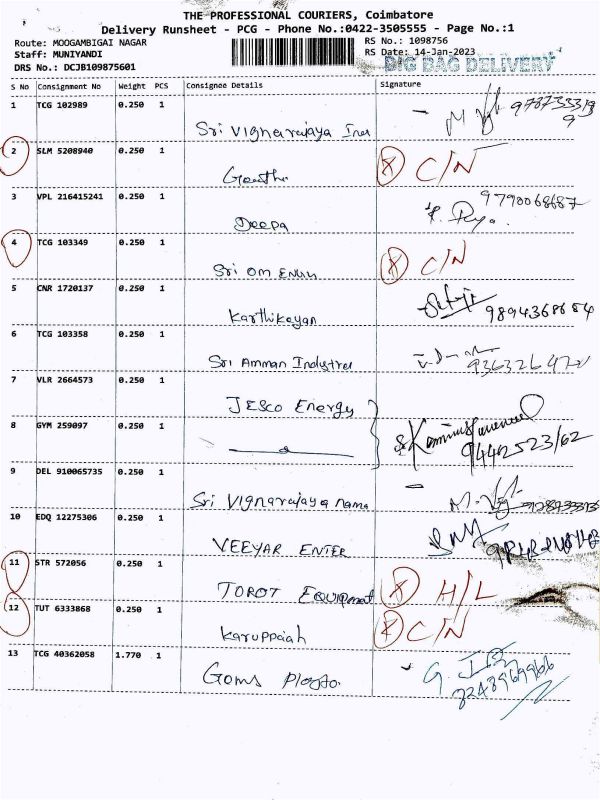 THE PROFESSIONAL COURIERS, Coimbatore
Delivery Runsheet - PCG - Phone No.:0422-3505555 - Page No.:1
Route: MOOGAMBIGAI NAGAR RS No.: 1098756
Staff: MUNIYANDI RS Date: 14-Jan-2023
DRS No.: DCJB109875601 BIG BAG DELIVERY
S No Consignment No Weight PCS Consignee Details Signature
1 TCG 102989 0.250 1
Sri Vignarajaya
2 SLM 5208940 0.250 1 C/N
Geetha
3 VPL 216415241 0.250 1 9790068687
Deepa
4 TCG 103349 0.250 1
Sri Om C/N
5 CNR 1720137 0.250 1
Karthikeyan 9894368684
6 TCG 103358 0.250 1
Sri Amman
7 VLR 2664573 0.250 1
JESCO Energy
8 GYM 259097 0.250 1
9442523162
9 DEL 910065735 0.250 1
Sri Vignarajaya
10 EDQ 12275306 0.250 1
VEEYAR ENTER
11 STR 572056 0.250 1
TOROT H/L
12 TUT 6333868 0.250 1 C/N
Karuppaiah
13 TCG 40362058 1.770 1
Goms